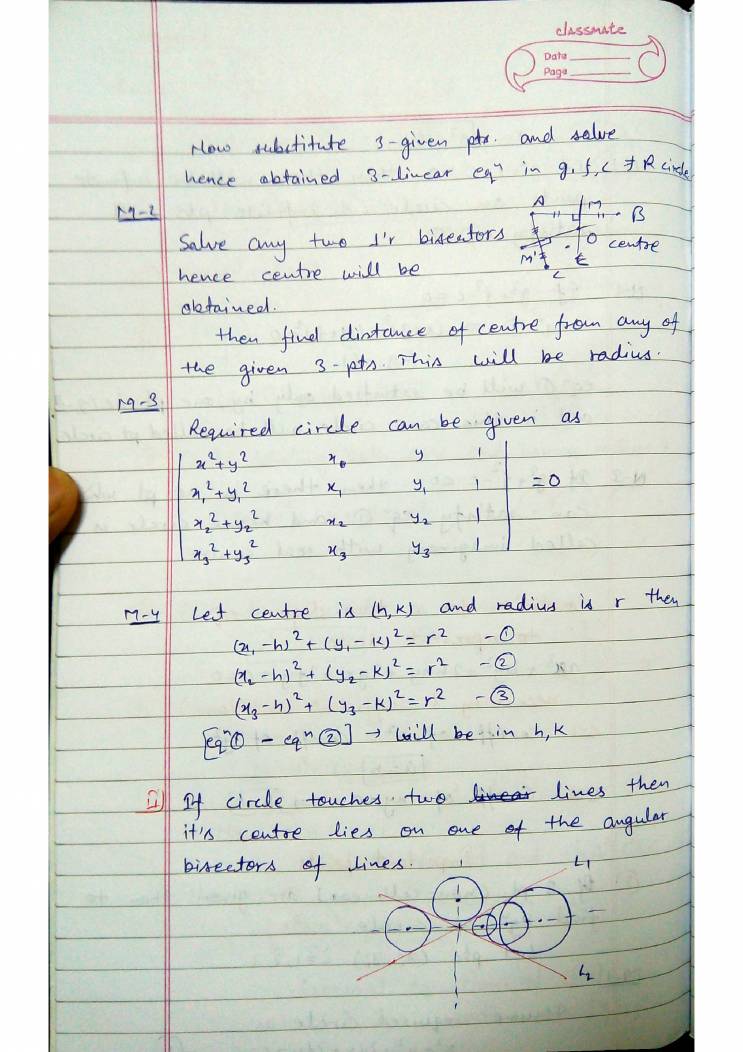 classmate
Date
Page
Now substitute 3-given pts. and solve
hence obtained 3-linear eqⁿ in g, f, c ⇒ R circle
M-2
A M B
Solve any two ⊥'r bisectors O centre
hence centre will be M' C
obtained.
then find distance of centre from any of
the given 3-pts. This will be radius.
M-3
Required circle can be given as
| x²+y² x y 1 |
| x₁²+y₁² x₁ y₁ 1 | =0
| x₂²+y₂² x₂ y₂ 1 |
| x₃²+y₃² x₃ y₃ 1 |
M-4 Let centre is (h,k) and radius is r then
(x₁-h)²+(y₁-k)²=r² -①
(x₂-h)²+(y₂-k)²=r² -②
(x₃-h)²+(y₃-k)²=r² -③
[eqⁿ① - eqⁿ②] → will be in h,k
II If circle touches two lines then
it's centre lies on one of the angular
bisectors of lines.
L₁
L₂